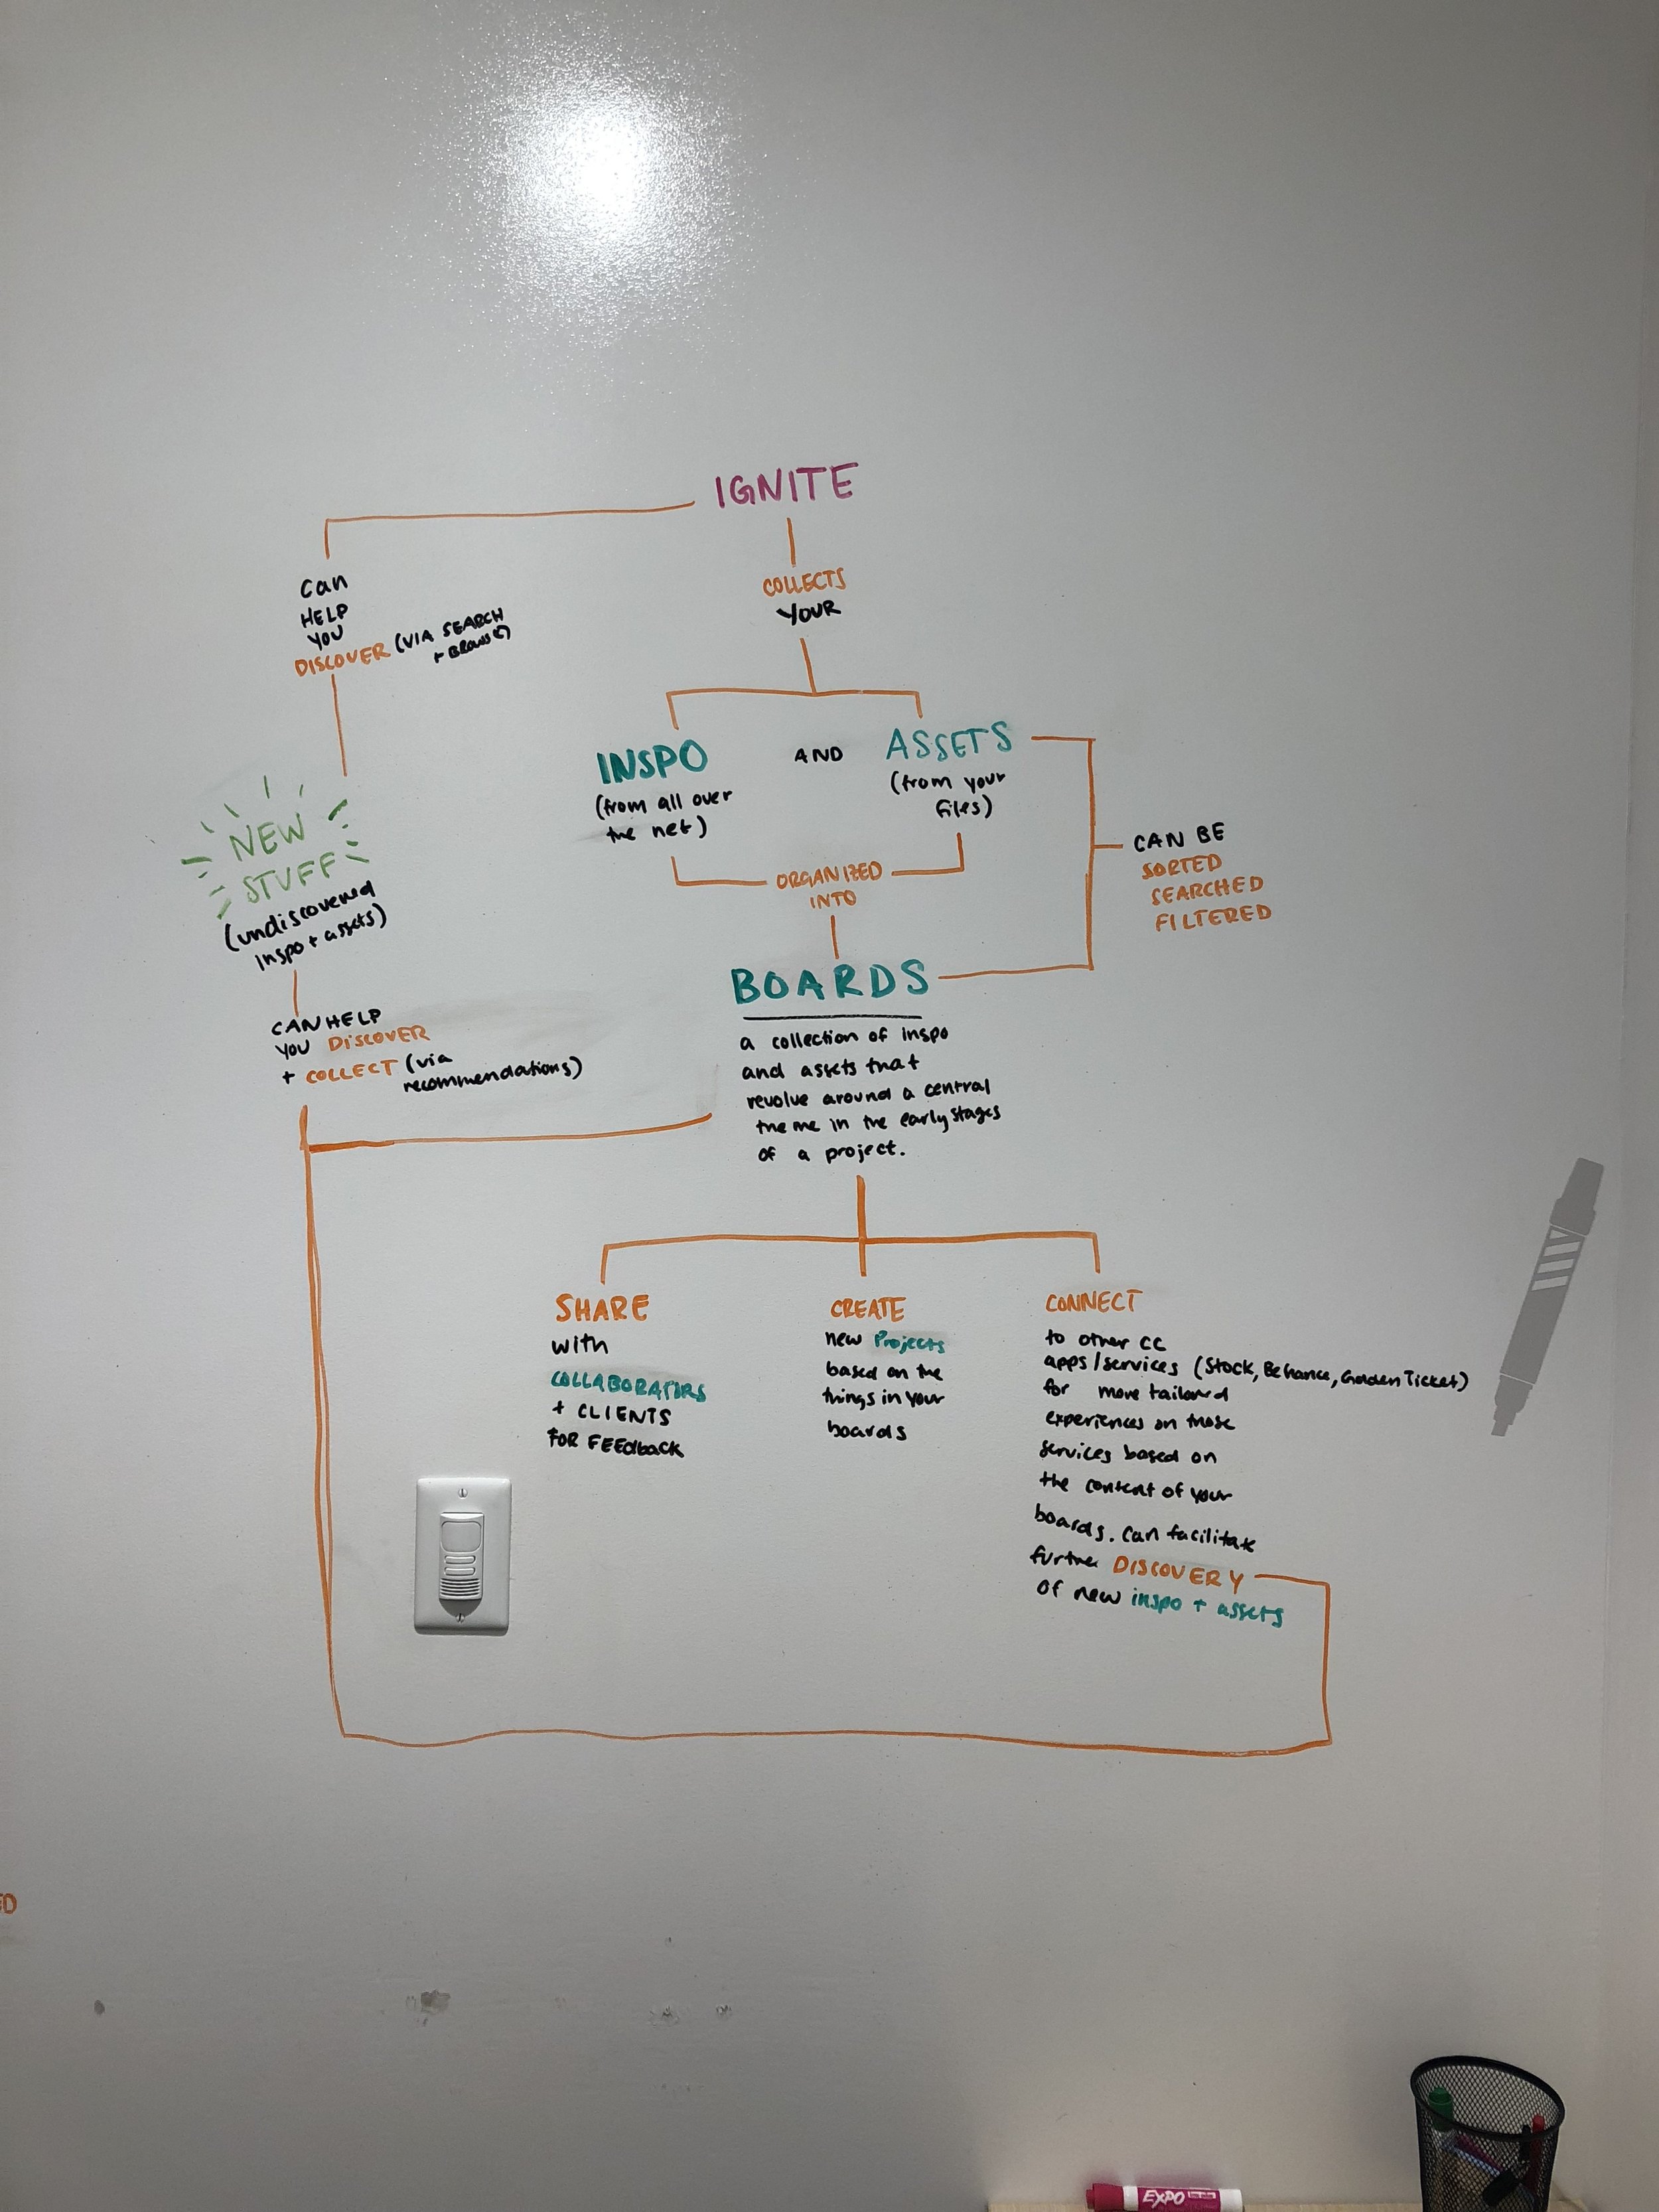 IGNITE
can
HELP
YOU
DISCOVER (VIA SEARCH
+ BROWSE)
COLLECTS
YOUR
INSPO
(from all over
the net)
AND
ASSETS
(from your
files)
CAN BE
SORTED
SEARCHED
FILTERED
ORGANIZED
INTO
NEW
STUFF
(undiscovered
inspo + assets)
CAN HELP
YOU DISCOVER
+ COLLECT (via
recommendations)
BOARDS
a collection of inspo
and assets that
revolve around a central
theme in the early stages
of a project.
SHARE
with
COLLABORATORS
+ CLIENTS
FOR FEEdback
CREATE
new Projects
based on the
things in your
boards
CONNECT
to other CC
apps/services (Stock, Behance, Golden Ticket)
for more tailored
experiences on those
services based on
the content of your
boards. Can facilitate
further DISCOVERY
of new inspo + assets
ED
EXPO